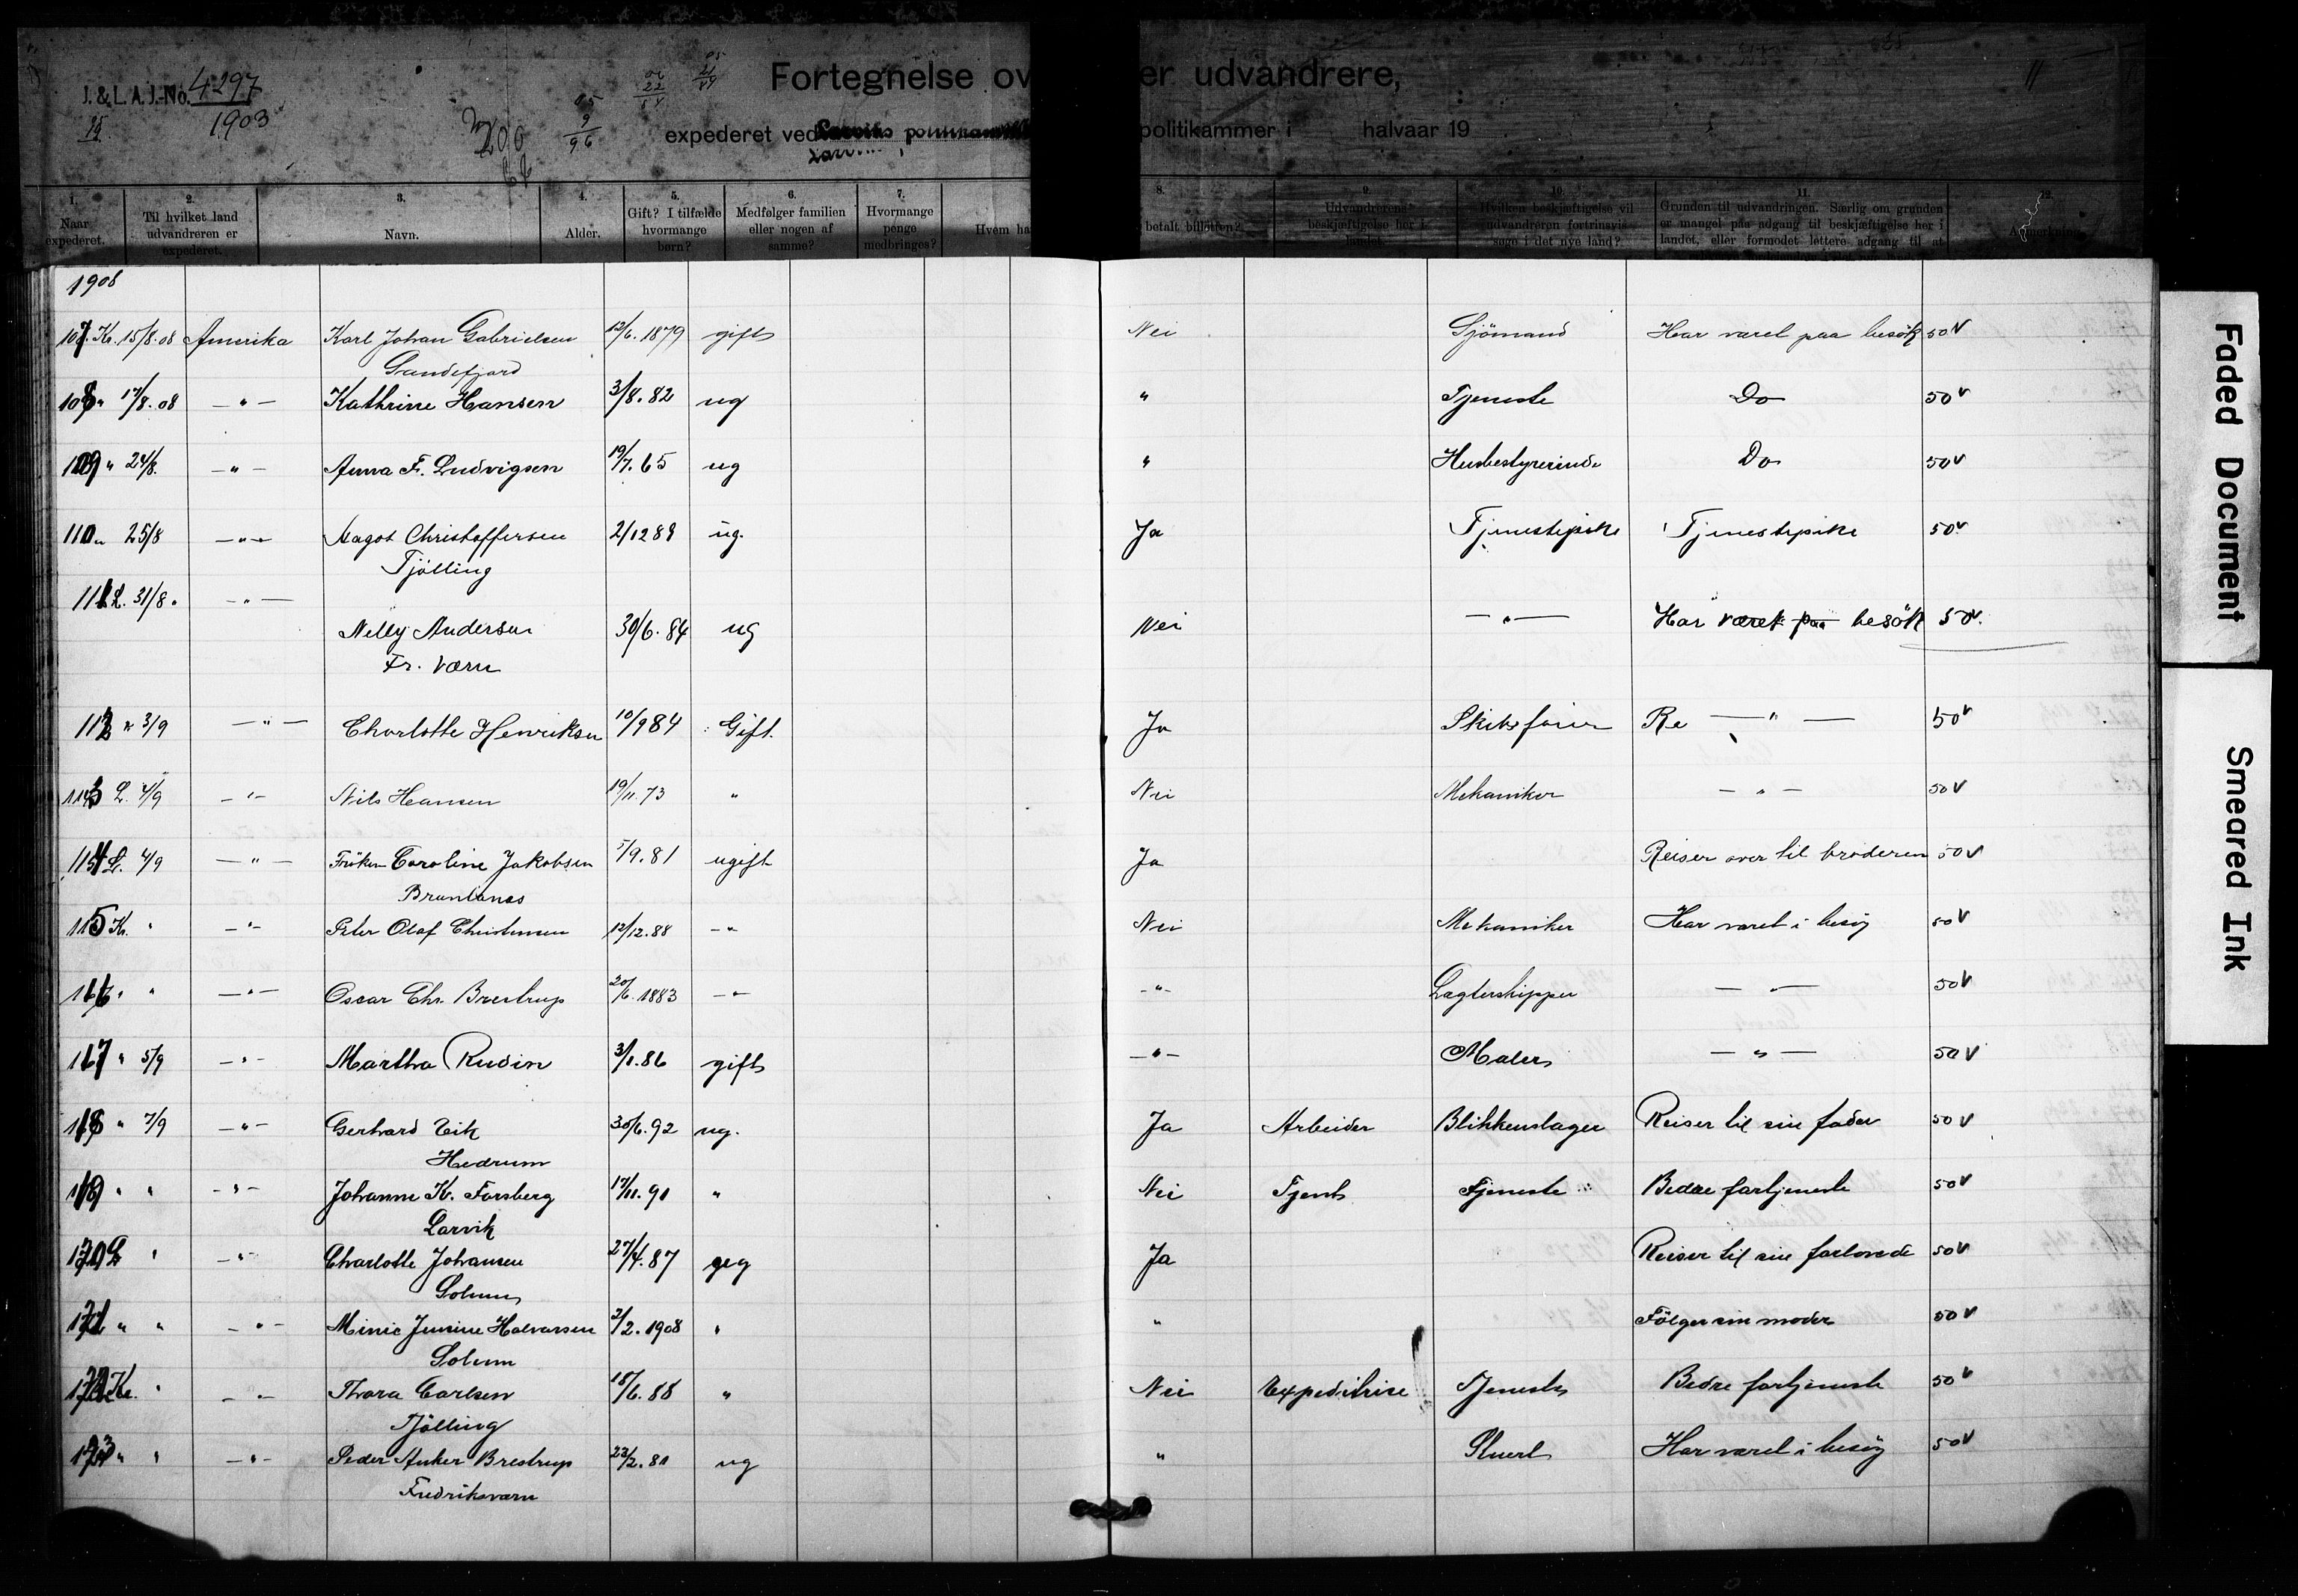 J. & L. A. J.-No. 4297
1903
200
Fortegnelse ov er udvandrere,
expederet ved Larviks politikammer i halvaar 19
1. Naar expederet.
2. Til hvilket land udvandreren er expederet.
3. Navn.
4. Alder.
5. Gift? I tilfælde hvormange børn?
6. Medfølger familien eller nogen af samme?
7. Hvormange penge medbringes?
Hvem ha
8. betalt billetten?
9. Udvandrerens beskjæftigelse her i landet.
10. Hvilken beskjæftigelse vil udvandreren fortrinsvis søge i det nye land?
11. Grunden til udvandringen. Særlig om grunden er mangel paa adgang til beskjæftigelse her i landet, eller formodet lettere adgang til at
12. Anmerkning
1908
107. Kr. 15/8.08 Amerika Karl Johan Gabrielsen 12/6.1879 gift Nei Sjömand Har varet paa besök 50 v
Sandefjord
108 " 17/8.08 — " — Kathrine Hansen 3/8.82 ug " Tjeneste Do 50 v
109 " 24/8. — " — Anna F. Ludvigsen 19/7.65 ug " Husbestyrerinde Do 50 v
110 " 25/8 — " — Aagot Christoffersen 2/12 89 ug. Ja Tjenestepike Tjenestepike 50 v
Tjölling
111 L. 31/8. — " —
Nelly Andersen 30/6.84 ug Nei — " — Har været paa besök 50 v.
Fr. Værn
112 " 3/9 — " — Charlotte Henriksen 10/9 84 Gift. Ja Skibsförer Re — " — 50 v
113 L. 4/9 — " — Nils Hansen 19/11.73 " Nei Mekaniker — " — 50 v
114 L. 4/9 — " — Fröken Caroline Jakobsen 5/9.81 ugift Ja Reiser over til broderen 50 v
Brunlanes
115 Kr. " — " — Peter Olaf Christensen 12/12.88 — " Nei Mekaniker Har varet i besög 50 v
116 " " — " — Oscar Chr. Brestrup 20/6.1883 — " — — " — Lægterskipper — " — 50 v
117 " 5/9 — " — Martha Rudin 3/1.86 gift — " — Maler — " — 50 v
118 " 7/9 — " — Gerhard Eik 30/6.92 ug. Ja Arbeider Blikkenslager Reiser til sin fader 50 v
Hedrum
119 " " — " — Johanne K. Forsberg 17/11.91 " Nei Tjent Tjeneste Bedre fortjeneste 50 v
Larvik
120 L " — " — Charlotte Johansen 27/4.87 ug Ja Reiser til sin forlovede 50 v
Solum
121 " " — " — Minie Jensine Halvorsen 2/2.1908 " " Fölger sin moder 50 v
Solum
122 Kr. " — " — Thora Carlsen 18/6.88 " Nei Expeditrise Tjeneste Bedre fortjeneste 50 v
Tjölling
123 " " — " — Peder Anker Brestrup 23/2.81 ug " Stuert Har varet i besög 50 v
Fredriksværn
Faded Document
Smeared Ink